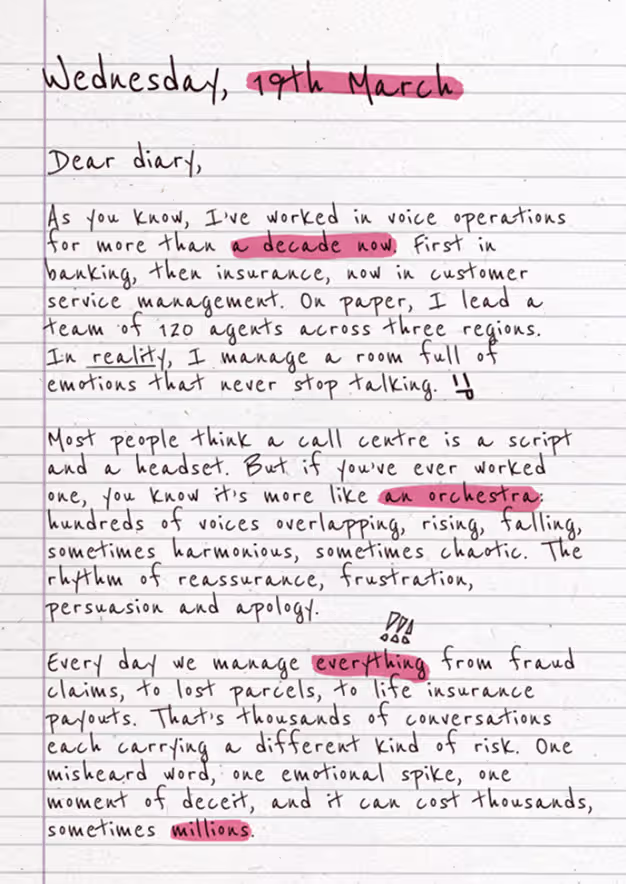 Wednesday, 19th March
Dear diary,
As you know, I've worked in voice operations
for more than a decade now. First in
banking, then insurance, now in customer
service management. On paper, I lead a
team of 120 agents across three regions.
In reality, I manage a room full of
emotions that never stop talking.
Most people think a call centre is a script
and a headset. But if you've ever worked
one, you know it's more like an orchestra:
hundreds of voices overlapping, rising, falling,
sometimes harmonious, sometimes chaotic. The
rhythm of reassurance, frustration,
persuasion and apology.
!!!
Every day we manage everything from fraud
claims, to lost parcels, to life insurance
payouts. That's thousands of conversations
each carrying a different kind of risk. One
misheard word, one emotional spike, one
moment of deceit, and it can cost thousands,
sometimes millions.